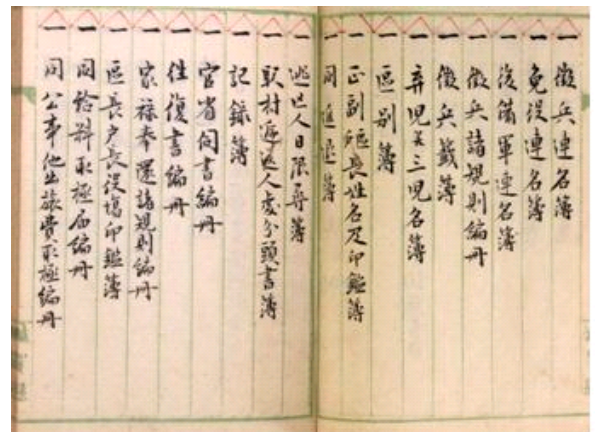 一 徴兵連名簿
一 免役連名簿
一 後備軍連名簿
一 徴兵諸規則編冊
一 徴兵籤簿
一 弃児三児名簿
一 区别簿
一 正副区長姓名及印鑑簿
一 同進退簿
一 逃亡人日限尋簿
一 駅村逓送人処分頭書簿
一 記録簿
一 官省伺書編冊
一 往復書編冊
一 家禄奉還諸規則編冊
一 區長戸長役場印鑑簿
一 同給料取極届編冊
一 同公事他出旅費取極編冊